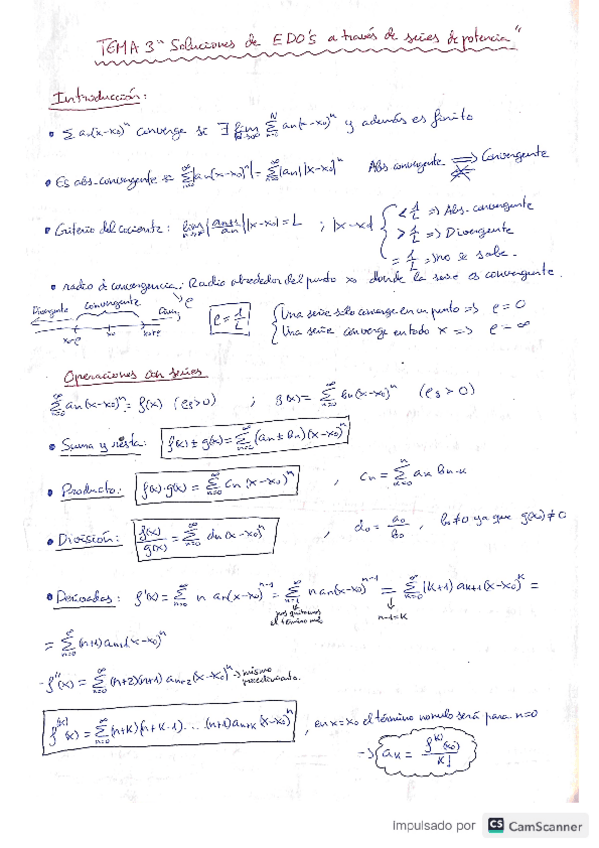 TEMA 3 "Soluciones de EDO's a través de series de potencia"
Introducción:
• Σ an(x-x₀)ⁿ converge si ∃ lim_{N→∞} Σ_{n=0}^{N} an(x-x₀)ⁿ y además es finito
• Es abs. convergente si Σ_{n=0}^{∞} |an(x-x₀)ⁿ| = Σ_{n=0}^{∞} |an| |x-x₀|ⁿ Abs convergente ⟹ Convergente
• Criterio del cociente: lim_{n→∞} |an+1/an| |x-x₀| = L ; |x-x₀| { < 1/L => Abs. convergente
> 1/L => Divergente
= 1/L => no se sabe.
• radio de convergencia: Radio alrededor del punto x₀ donde la serie es convergente.
Divergente convergente ρ
x₀-ρ x₀ x₀+ρ
ρ = 1/L { Una serie solo converge en un punto => ρ = 0
Una serie converge en todo x => ρ = ∞
Operaciones con series
Σ_{n=0}^{∞} an(x-x₀)ⁿ = f(x) (ρf>0) ; g(x) = Σ_{n=0}^{∞} bn(x-x₀)ⁿ (ρg > 0)
• Suma y resta: f(x) ± g(x) = Σ_{n=0}^{∞} (an ± bn)(x-x₀)ⁿ
• Producto: f(x)·g(x) = Σ_{n=0}^{∞} cn (x-x₀)ⁿ , cn = Σ_{k=0}^{n} ak bn-k
• División: f(x)/g(x) = Σ_{n=0}^{∞} dn (x-x₀)ⁿ , d₀ = a₀/b₀ , b₀≠0 ya que g(x) ≠ 0
• Derivadas: f'(x) = Σ_{n=0}^{∞} n an(x-x₀)ⁿ⁻¹ = Σ_{n=1}^{∞} n an(x-x₀)ⁿ⁻¹ = Σ_{k=0}^{∞} (k+1) ak+1 (x-x₀)ᵏ =
el término
n-1=k
= Σ_{n=0}^{∞} (n+1) an+1 (x-x₀)ⁿ
- f''(x) = Σ_{n=0}^{∞} (n+2)(n+1) an+2 (x-x₀)ⁿ → mismo procedimiento.
f^(k)(x) = Σ_{n=0}^{∞} (n+k)(n+k-1)...(n+1) an+k (x-x₀)ⁿ , en x=x₀ el término no nulo será para n=0
→ ak = f^(k)(x₀)/k!
Impulsado por CS CamScanner